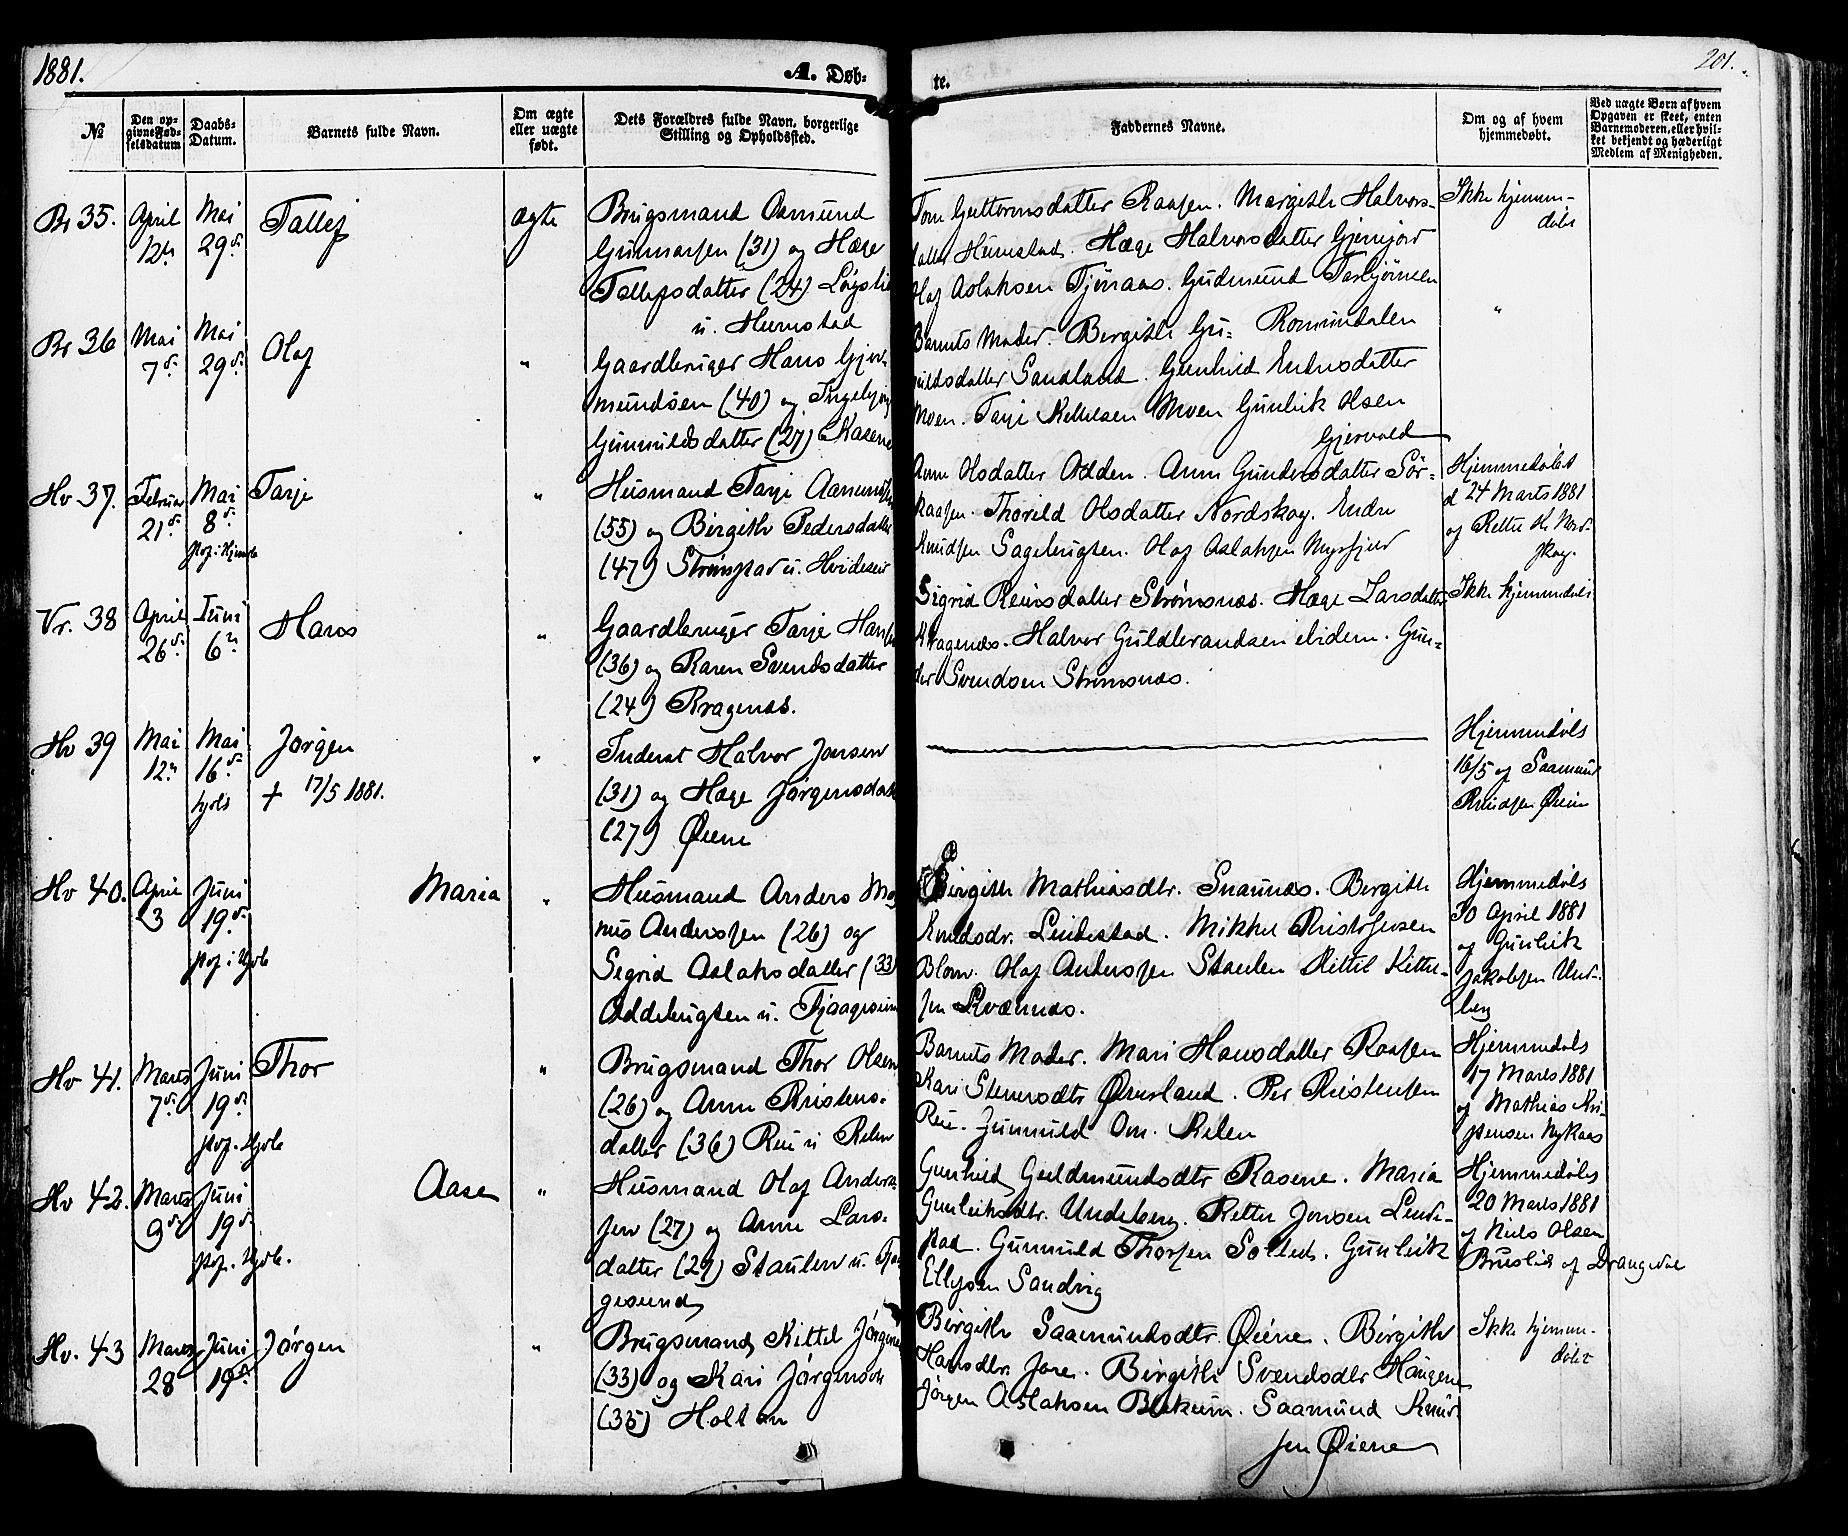 1881.
A. Døb-
te.
201.
№
Den op-
givne Fød-
selsdatum
Daabs-
Datum.
Barnets fulde Navn.
Om ægte
eller uægte
født.
Dets Forældres fulde Navn, borgerlige
Stilling og Opholdssted.
Faddernes Navne.
Om og af hvem
hjemmedøbt.
Ved uægte Børn af hvem
Opgaven er skeet, enten
Barnemoderen, eller hvil-
ket bekjendt og hæderligt
Medlem af Menigheden.
Br 35.
April
12te
Mai
29de
Tallef
ægte
Brugsmand Aamund
Gunnarsen (31) og Hæge
Tallefsdatter (24) Løgsli
u. Humstad
Tone Guttormsdatter Raasen. Margith Halvors-
datter Humstad. Hæge Halvorsdatter Gjernjor
Olaf Aslaksen Tjønaas. Gudmund Torbjørnsen
Romundalen
Ikke hjemme-
døbt
Br 36
Mai
7de
Mai
29de
Olaf
"
Gaardbruger Hans Gjer-
mundsen (40) og Ingebjørg
Gunnuldsdatter (27) Kasene
Barnets Moder. Bergith Gu-
nuldsdatter Sandland. Gunhild Endresdatter
Moen. Tarje Kettelsen Moen Gunleik Olsen
Gjervold
"
Hv 37.
Februar
21de
Mai
8de
præs. i Kirke
Tarje
"
Husmand Tarje Aanundsen
(55) og Birgith Pedersdatter
(47) Strømsaar u. Hvideseid
Anne Olsdatter Odden. Anne Gundersdatter Sør-
raasen. Thorild Olsdatter Nordskog. Endre
Knudsen Sagebrugten. Olaf Aslaksen Myrfjeld
Hjemmedøbt
d 24 Marts 1881
og Kettil H. Nord-
skog.
Vr. 38
April
26de
Juni
6te
Hans
"
Gaardbruger Tarje Hansen
(36) og Karen Svendsdatter
(24) Kragenæs.
Sigrid Reiersdatter Strømsnæs. Hæge Larsdatter
Kragenæs. Halvor Guldbrandsen ibidem. Gun-
der Svendsen Strømsnæs.
Ikke hjemmedøbt
Hv 39
Mai
12te
Mai
16de
hjdbt
Jørgen
+ 17/5 1881.
"
Inderst Halvor Jonsen
(31) og Hæge Jørgensdatter
(27) Øiene
Hjemmedøbt
16/5 af Saamund
Knudsen Øiene
Hv 40.
April
3
Juni
19de
præs. i Kirke
Maria
"
Husmand Anders Mag
nus Anderssen (26) og
Sigrid Aslaksdatter (33)
Oddebrugten u. Fjaagesund
Birgith Mathiasdtr. Snaunæs. Bergith
Knudsdr. Lindestad. Mikkel Kristofersen
Blom. Olaf Anderssen Staulen Kittil Kittel-
sen Kvænnæs.
Hjemmedøbt
30 April 1881
af Gunleik
Jakobsen Und-
berg
Hv 41.
Marts
7de
Juni
19de
præs. Kirke
Thor
"
Brugsmand Thor Olsen
(26) og Anne Kristens-
datter (36) Rui u Kelen
Barnets Moder. Mari Hansdatter Raasen
Kari Stenersdtr Øverland. Per Kristensen
Rui. Gunnuld Om. Kelen
Hjemmedøbt
17 Marts 1881
af Mathias Kri-
stensen Nykaas
Hv 42.
Marts
9de
Juni
19de
præs. Kirke.
Aase
"
Husmand Olaf Anders
sen (27) og Anne Lars-
datter (29) Staulen u. Fjaa
gesund
Gunhild Guldmundsdtr Kasene. Maria
Gunleiksdtr. Undeberg. Kittel Jonsen Linde-
stad. Gunnuld Thorsen Solted. Gunleik
Ellefsen Sandvig
Hjemmedøbt
20 Marts 1881
af Niels Olsen
Buslid af Drangedal
Hv. 43
Marts
28
Juni
19de
Jørgen
"
Brugsmand Kittel Jørgens
(33) og Kari Jørgensdt
(35) Holtan
Birgith Saamundsdtr. Øiene. Birgith
Hansdtr. Jore. Birgith Svendsdtr Haugen
Jørgen Aslaksen Bakum. Saamund Knud-
sen Øiene
Ikke hjemme-
døbt